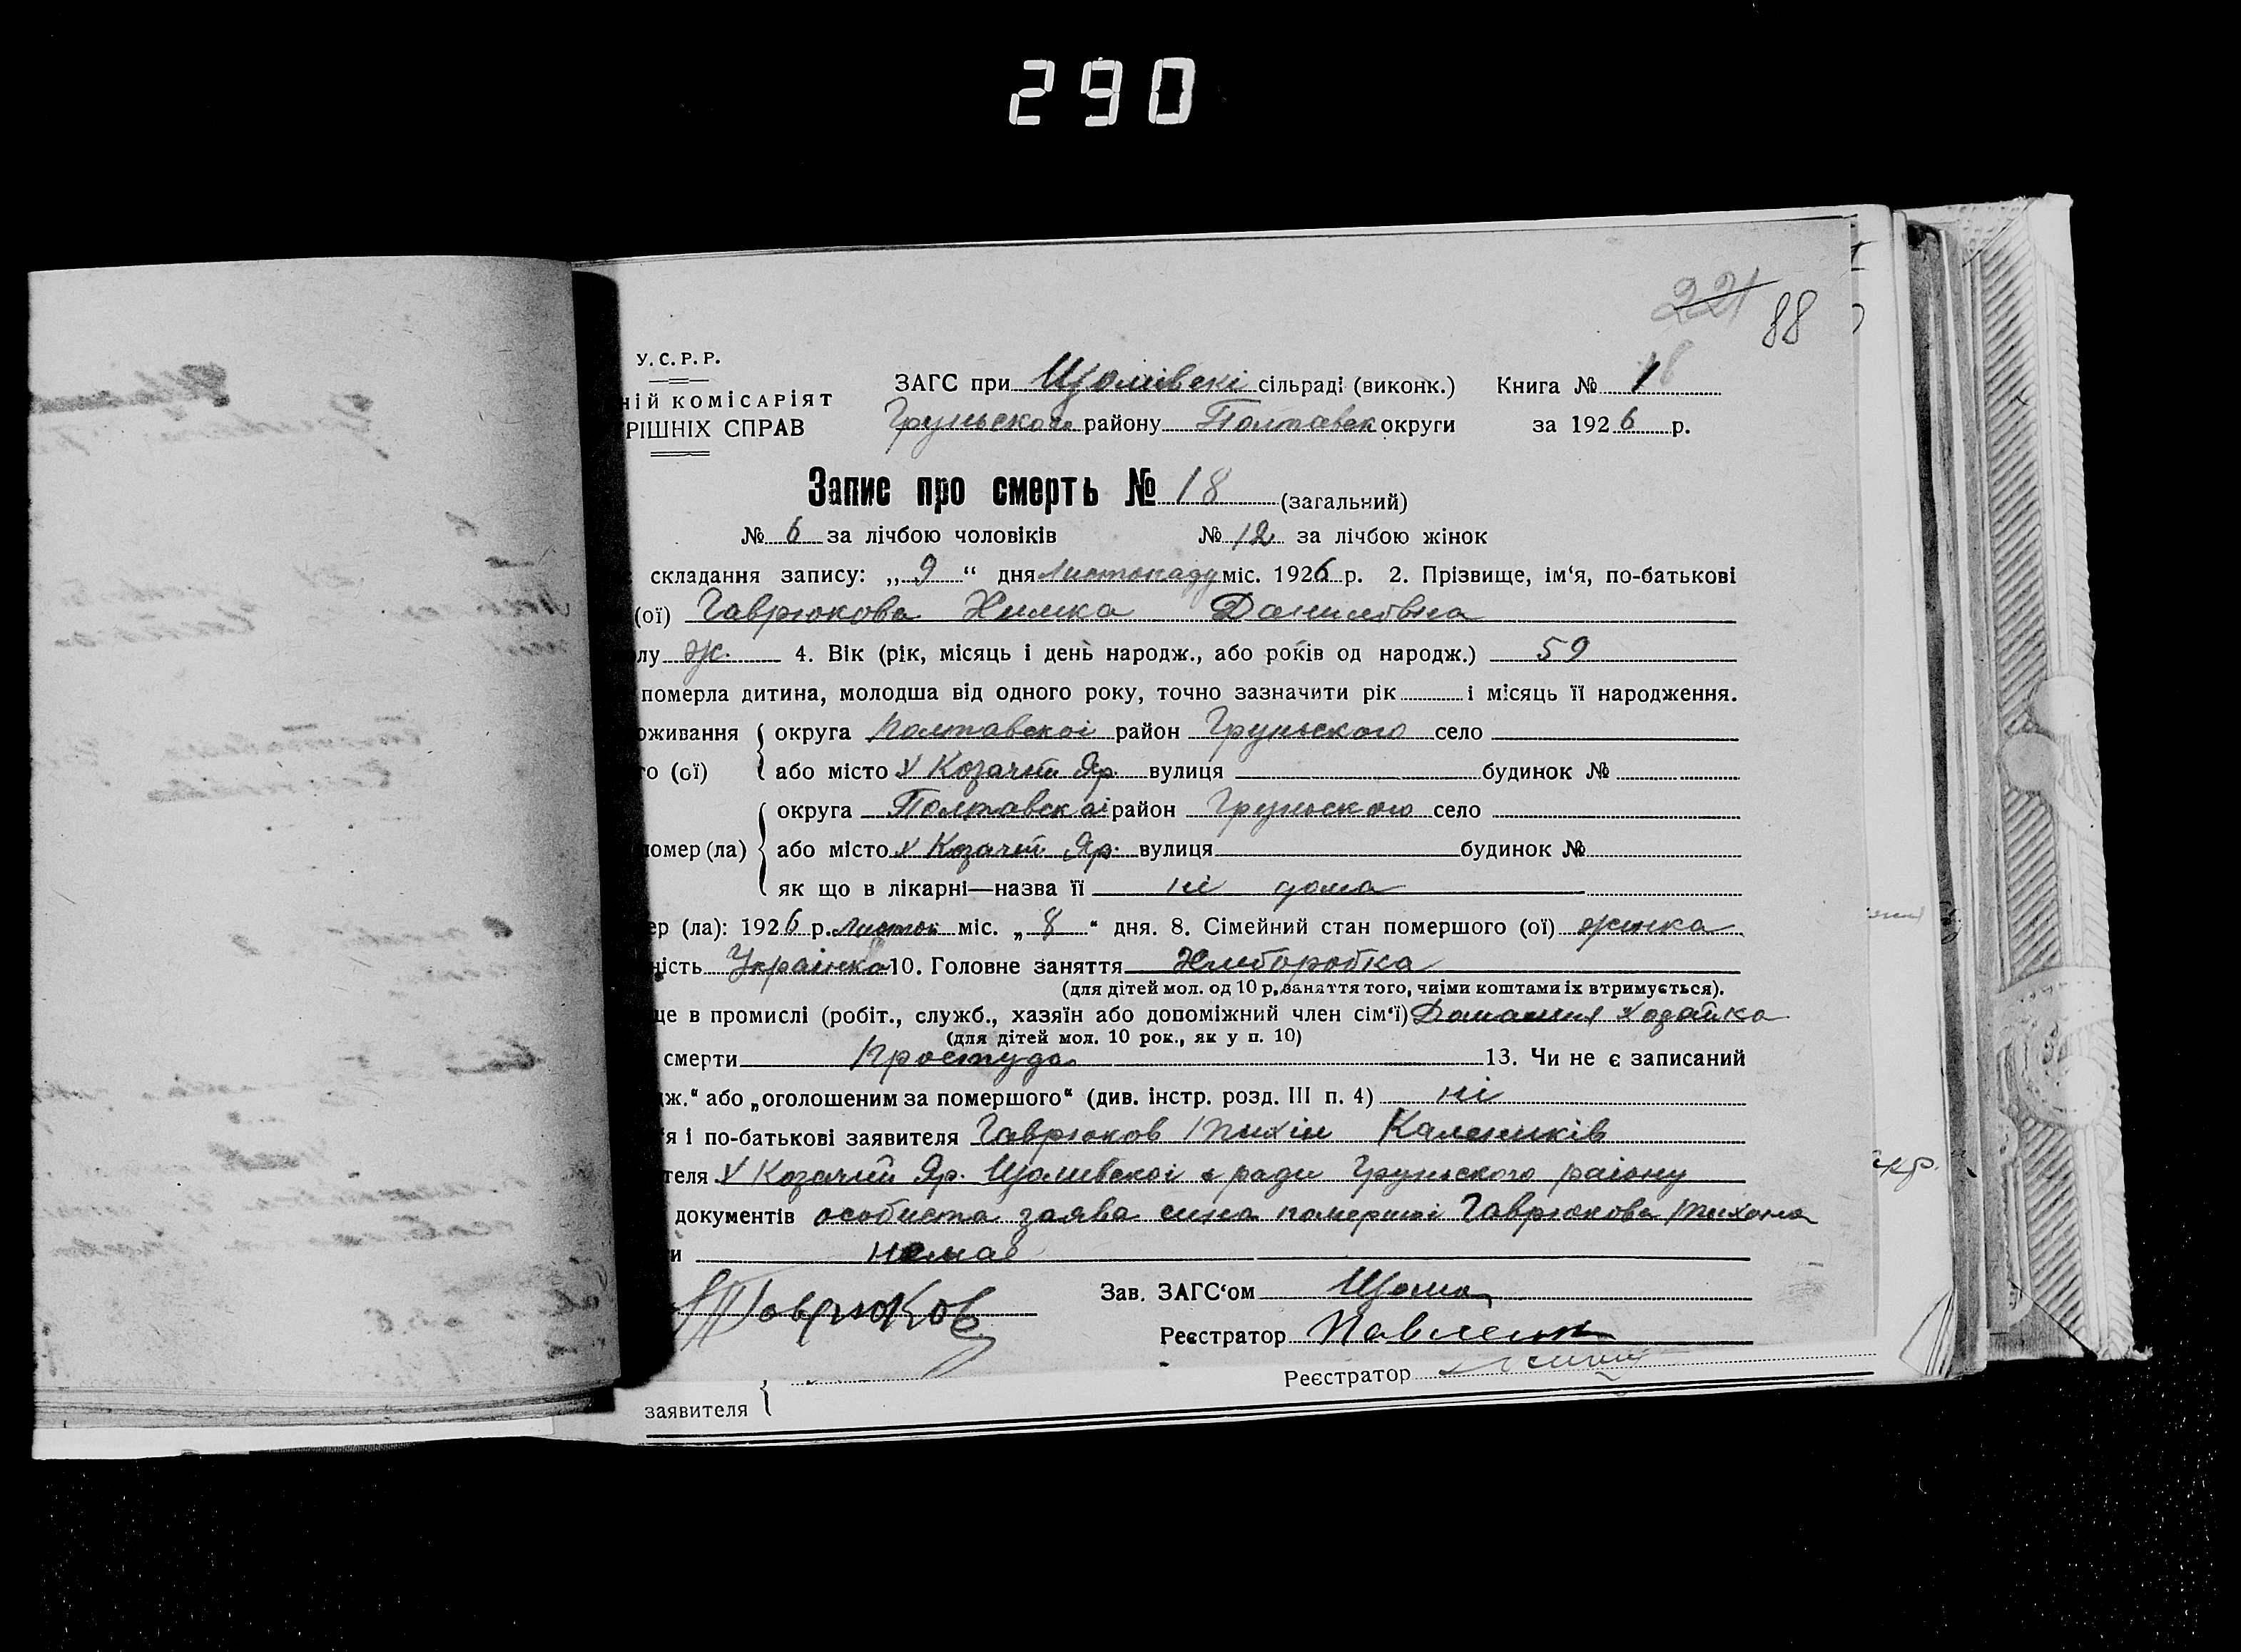 290
221 88
У.С.Р.Р.
ній комісаріят
рішніх справ
ЗАГС при Щомівскі сільраді (виконк.) Книга № 1
Груньского району Полтавск округи за 1926 р.
Запис про смерть № 18 (загальний)
№ 6 за лічбою чоловіків № 12 за лічбою жінок
складання запису: „9“ дня Листопаду міс. 1926 р. 2. Прізвище, ім‘я, по-батькові
(ої) Гаврюкова Химка Данилівна
лу ж. 4. Вік (рік, місяць і день народж., або років од народж.) 59
померла дитина, молодша від одного року, точно зазначити рік і місяць її народження.
оживання округа Полтавскої район Груньского село
го (ої) або місто х Козачий Яр. вулиця будинок №
округа Полтавскаі район Груньского село
помер (ла) або місто х Козачий Яр. вулиця будинок №
як що в лікарні—назва її ні дома
ер (ла): 1926 р. Листоп міс. „8“ дня. 8. Сімейний стан помершого (ої) жинка
ність Українка 10. Головне заняття Хлиборобка
(для дітей мол. од 10 р, заняття того, чиіми коштами їх втримується).
ще в промислі (робіт., служб., хазяїн або допоміжний член сім‘ї) Домашня ходяйка
(для дітей мол. 10 рок., як у п. 10)
смерти Простуда 13. Чи не є записаний
дж.“ або „оголошеним за помершого“ (див. інстр. розд. III п. 4) ні
‘я і по-батькові заявителя Гаврюков Тихін Калеників
теля х Козачий Яр. Щомивскої с ради Груньского раіону
документів особиста заява сина помершоі Гаврюкова Тихона
и немає
Гаврюков Зав. ЗАГС‘ом Щома
Реєстратор Павленко
Реєстратор
заявителя